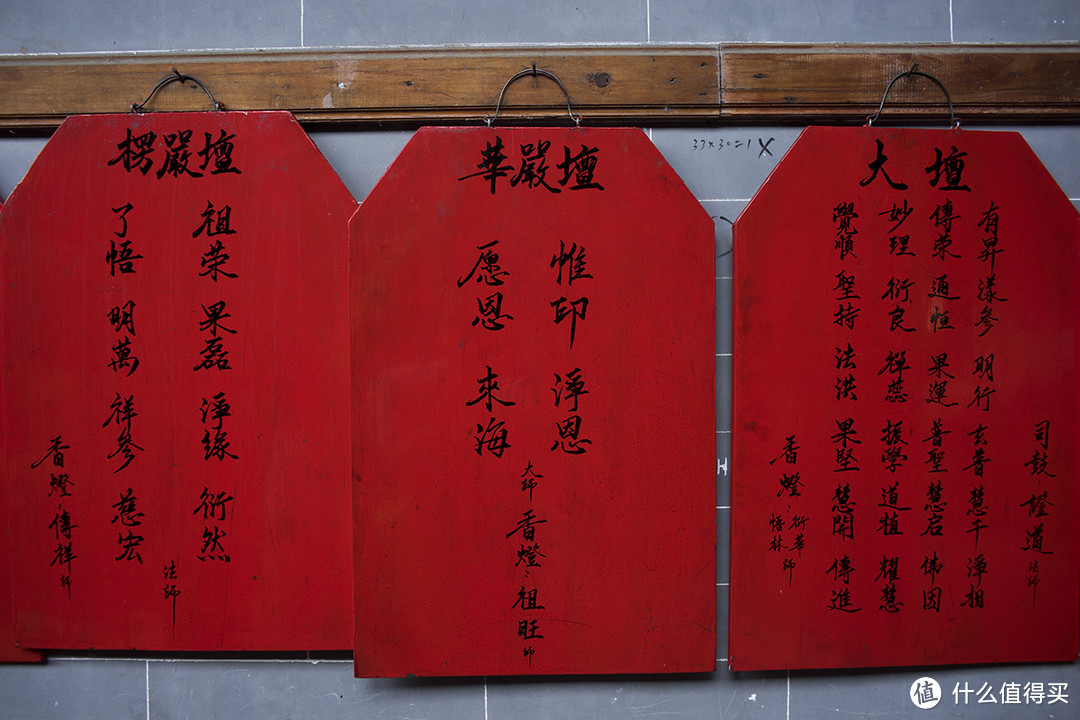 楞嚴壇
祖荣 果磊 淨緣 衍然
了悟 明萬 祥參 慈宏
法師
香燈：傳祥師
華嚴壇
惟印 淨恩
愿恩 來海
大師
香燈：祖旺師
大壇
司鼓：證道法師
有昇 漾參 明行 玄普 慧干 淨相
傳荣 通恒 果運 普聖 慧启 佛因
妙理 衍良 禅蕊 振學 道植 耀慧
覺順 聖持 法洪 果堅 慧開 傳進
香燈：衍華
悟林師
33×30=1 X
H
值 什么值得买